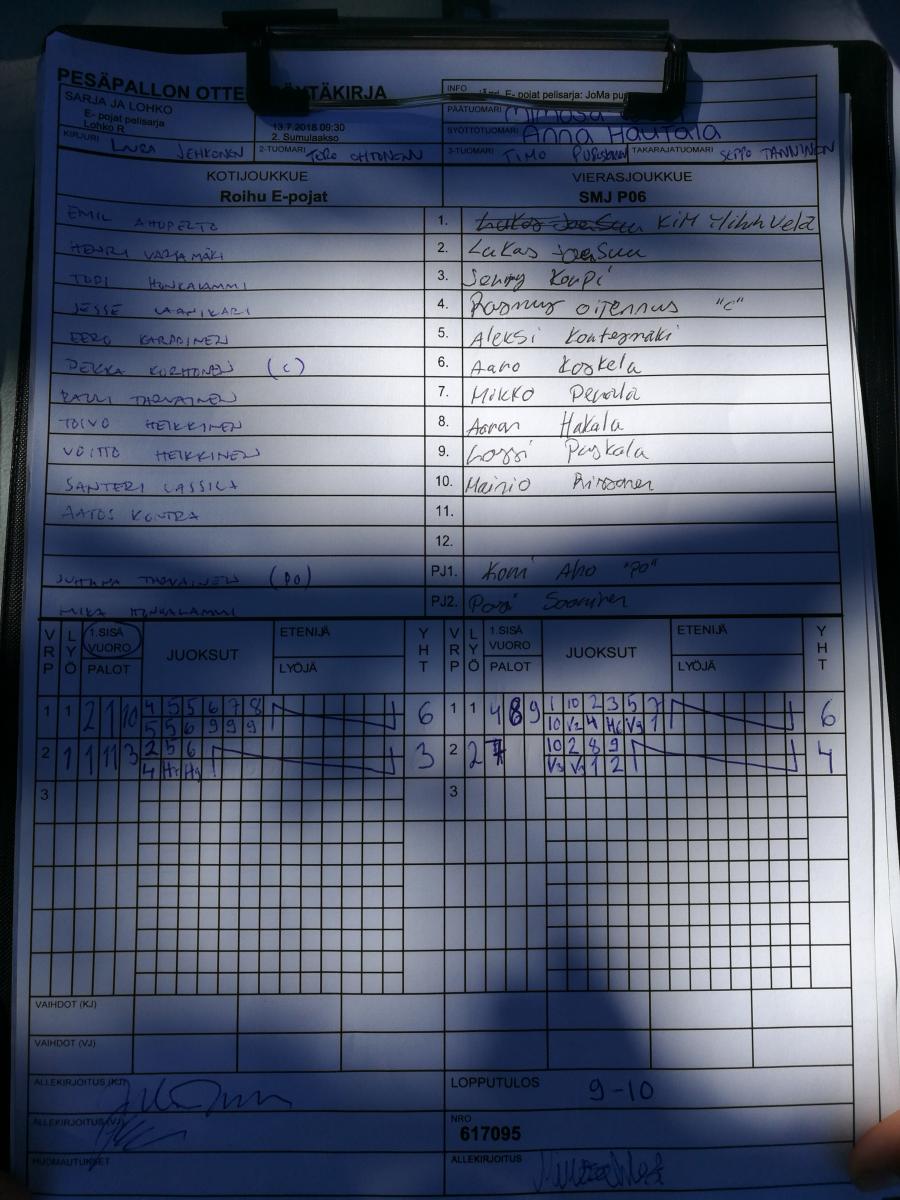 PESÄPALLON OTTE KIRJA
SARJA JA LOHKO
E- pojat pelisarja
Lohko R
13.7.2018 09:30
2. Sumulaakso
INFO E- pojat pelisarja: JoMa
PÄÄTUOMARI
SYÖTTÖTUOMARI Anna Hautala
KIRJURI LAURA 2-TUOMARI 3-TUOMARI TIMO TAKARAJATUOMARI SEPPO TANNINEN
KOTIJOUKKUE VIERASJOUKKUE
Roihu E-pojat SMJ P06
EMIL 1. KiM
HENRI VARJAMÄKI 2. Lukas
TOPI HONKALAMMI 3.
JESSE LAANIKARI 4. Rasmus "C"
EERO KARPPINEN 5. Aleksi
PEKKA KORHONEN (C) 6. Aaro Koskela
TARVAINEN 7. Mikko Penala
TOIVO HEIKKINEN 8. Aaron Hakala
VOITTO HEIKKINEN 9. Lassi Puskala
SANTERI LASSILA 10. Mainio
AATOS KONTRA 11.
12.
JUHANA TARVAINEN (PO) PJ1. Aho "PO"
MIKA HONKALAMMI PJ2. Saarinen
VRP LYÖ 1.SISÄ VUORO PALOT JUOKSUT ETENIJÄ LYÖJÄ YHT VRP LYÖ 1.SISÄ VUORO PALOT JUOKSUT ETENIJÄ LYÖJÄ YHT
1 1 2 1 10 4 5 5 6 7 8 6 1 1 4 8 9 1 10 2 3 5 7 6
5 5 6 9 9 9 10 V2 4 V9 1
2 1 1 11 3 2 5 6 3 2 2 7 10 2 8 9 4
4 V3 1 2
3 3
VAIHDOT (KJ)
VAIHDOT (VJ)
ALLEKIRJOITUS (KJ) LOPPUTULOS 9-10
ALLEKIRJOITUS (VJ) NRO
617095
HUOMAUTUKSET ALLEKIRJOITUS